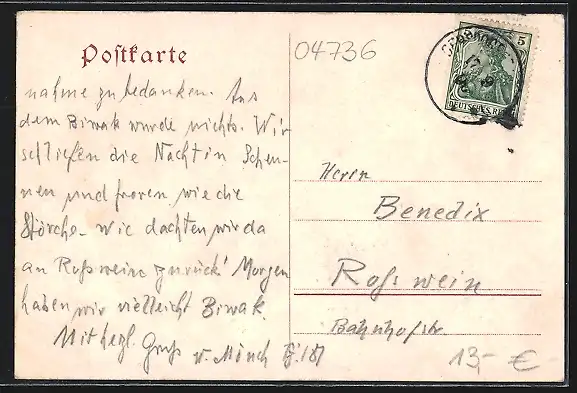 Postkarte
04736
5
DEUTSCHES REICH
nahme zu bedanken. Aus
dem Biwak wurde nichts. Wir
schliefen die Nacht in Scheu-
nen und froren wie die
Störche. Wie dachten wir da
an Roßwein zurück! Morgen
haben wir vielleicht Biwak.
Mit herzl. Gruß v. Mönch
Herrn
Benedix
Roßwein
Bahnhofstr
13,- €